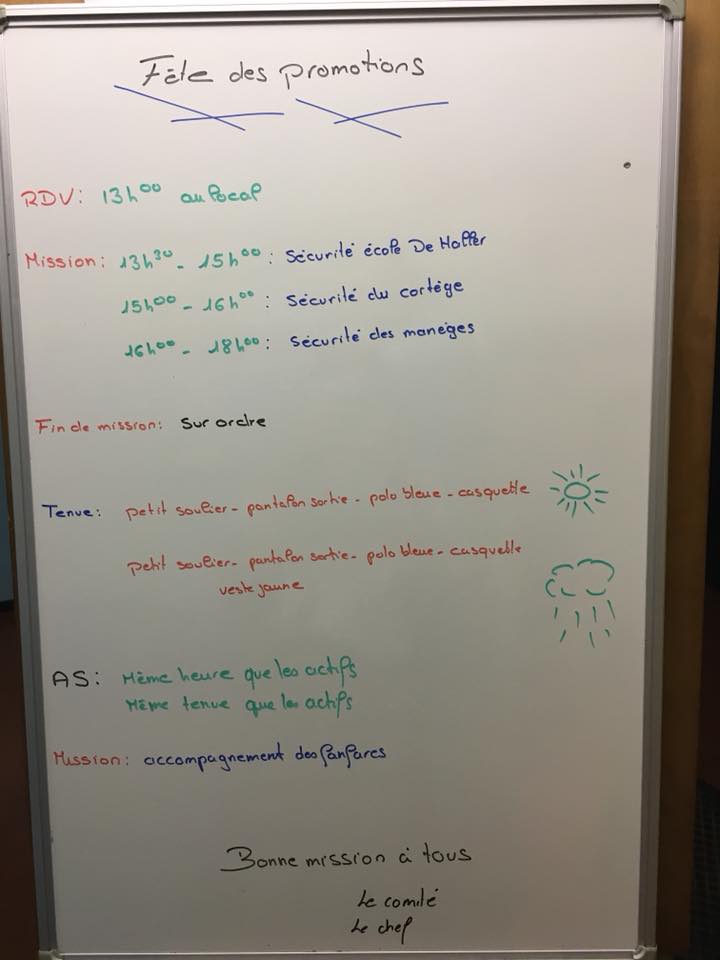 Fête des promotions
RDV: 13h00 au local
Mission: 13h30 - 15h00: Sécurité école De Haller
15h00 - 16h00: Sécurité du cortège
16h00 - 18h00: Sécurité des manèges
Fin de mission: sur ordre
Tenue: petit soulier - pantalon sortie - polo bleue - casquette
petit soulier - pantalon sortie - polo bleue - casquette
veste jaune
AS: Même heure que les actifs
Même tenue que les actifs
Mission: accompagnement des fanfares
Bonne mission à tous
Le comité
Le chef